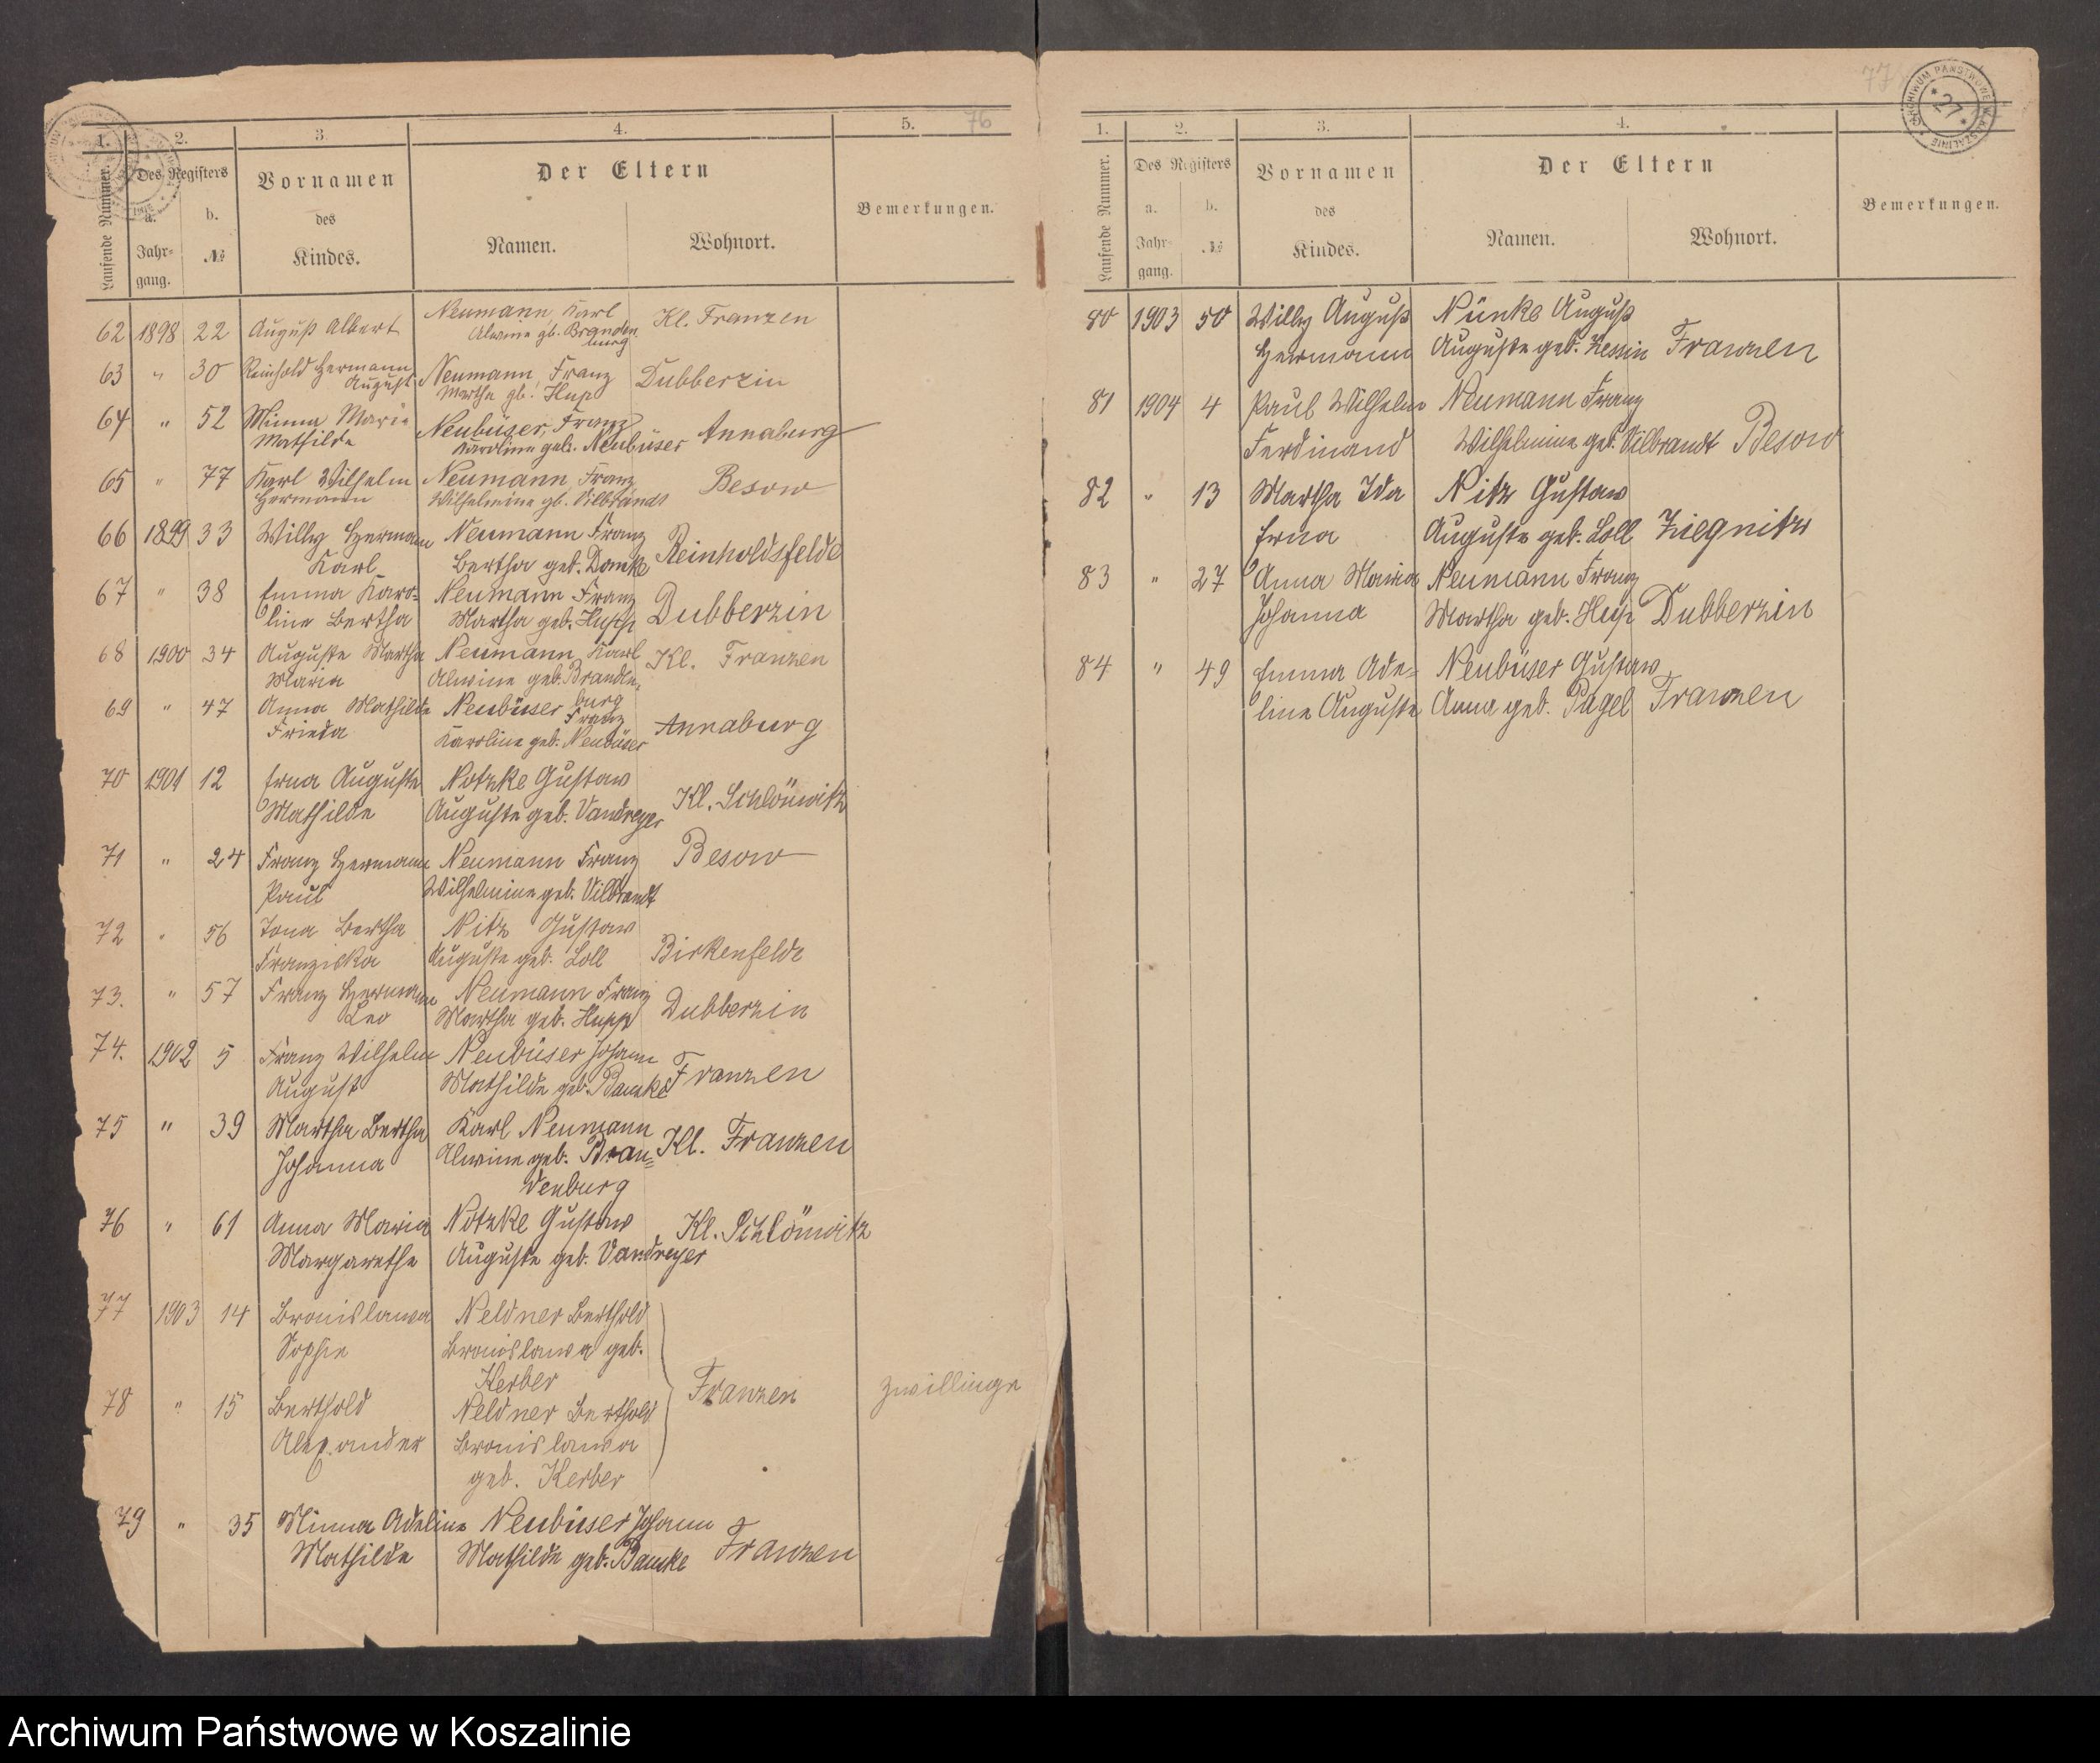 76
1. 2. 3. 4. 5.
Laufende Nummer. Des Registers Vornamen Der Eltern
a. b. des Bemerkungen.
Jahr- № Kindes. Namen. Wohnort.
gang.
62 1898 22 August Albert Neumann, Karl Kl. Franzen
Alwine gb. Branden
burg
63 " 30 Reinhold Hermann Neumann, Franz Dubberzin
August Martha gb. Hup
64 " 52 Minna Marie Neubüser, Franz Annaburg
Mathilde Karoline geb. Neubüser
65 " 77 Karl Wilhelm Neumann, Franz Besow
Hermann Wilhelmine gb. Vilbrandt
66 1899 33 Willy Hermann Neumann Franz Reinholdsfelde
Karl Bertha geb. Damke
67 " 38 Emma Karo= Neumann Franz Dubberzin
line Bertha Martha geb. Hupp
68 1900 34 Auguste Martha Neumann, Karl Kl. Franzen
Maria Alwine geb. Branden
burg
69 " 47 Anna Mathilde Neubüser Franz Annaburg
Frieda Karoline geb. Neubüser
70 1901 12 Erna Auguste Notzke Gustaw Kl. Schlönwitz
Mathilde Auguste geb. Vandreyer
71 " 24 Franz Hermann Neumann Franz Besow
Paul Wilhelmine geb. Vilbrandt
72 " 56 Bertha Nitz Gustaw Birkenfelde
Franziska Auguste geb. Loll
73. " 57 Franz Hermann Neumann Franz Dubberzin
Leo Martha geb. Hupp
74. 1902 5 Franz Wilhelm Neubüser Johann Franzen
August Mathilde geb. Bamke
75 " 39 Martha Bertha Karl Neumann Kl. Franzen
Johanna Alwine geb. Bran=
denburg
76 " 61 Anna Maria Notzke Gustaw Kl. Schlönwitz
Margarethe Auguste geb. Vandreyer
77 1903 14 Bronislawa Neldner Berthold
Sophie Bronislawa geb.
Kerber
Franzen Zwillinge
78 " 15 Berthold Neldner Berthold
Alexander Bronislawa
geb. Kerber
79 " 35 Minna Adeline Neubüser Johann Franzen
Mathilde Mathilde geb. Bamke
77
ARCHIWUM PAŃSTWOWE W KOSZALINIE
* 27 *
1. 2. 3. 4.
Laufende Nummer. Des Registers Vornamen Der Eltern
a. b. des Bemerkungen.
Jahr- № Kindes. Namen. Wohnort.
gang.
80 1903 50 Willy August Nünke August
Hermann Auguste geb. Zessin Franzen
81 1904 4 Paul Wilhelm Neumann Franz
Ferdinand Wilhelmine geb. Vilbrandt Besow
82 " 13 Martha Ida Nitz Gustaw
Erna Auguste geb. Loll Ziegnitz
83 " 27 Anna Maria Neumann Franz
Johanna Martha geb. Hup Dubberzin
84 " 49 Emma Ade= Neubüser Gustaw
line Auguste Anna geb. Pagel Franzen
Archiwum Państwowe w Koszalinie